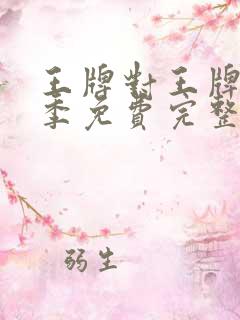 王牌對王牌
季免費完整
弱生